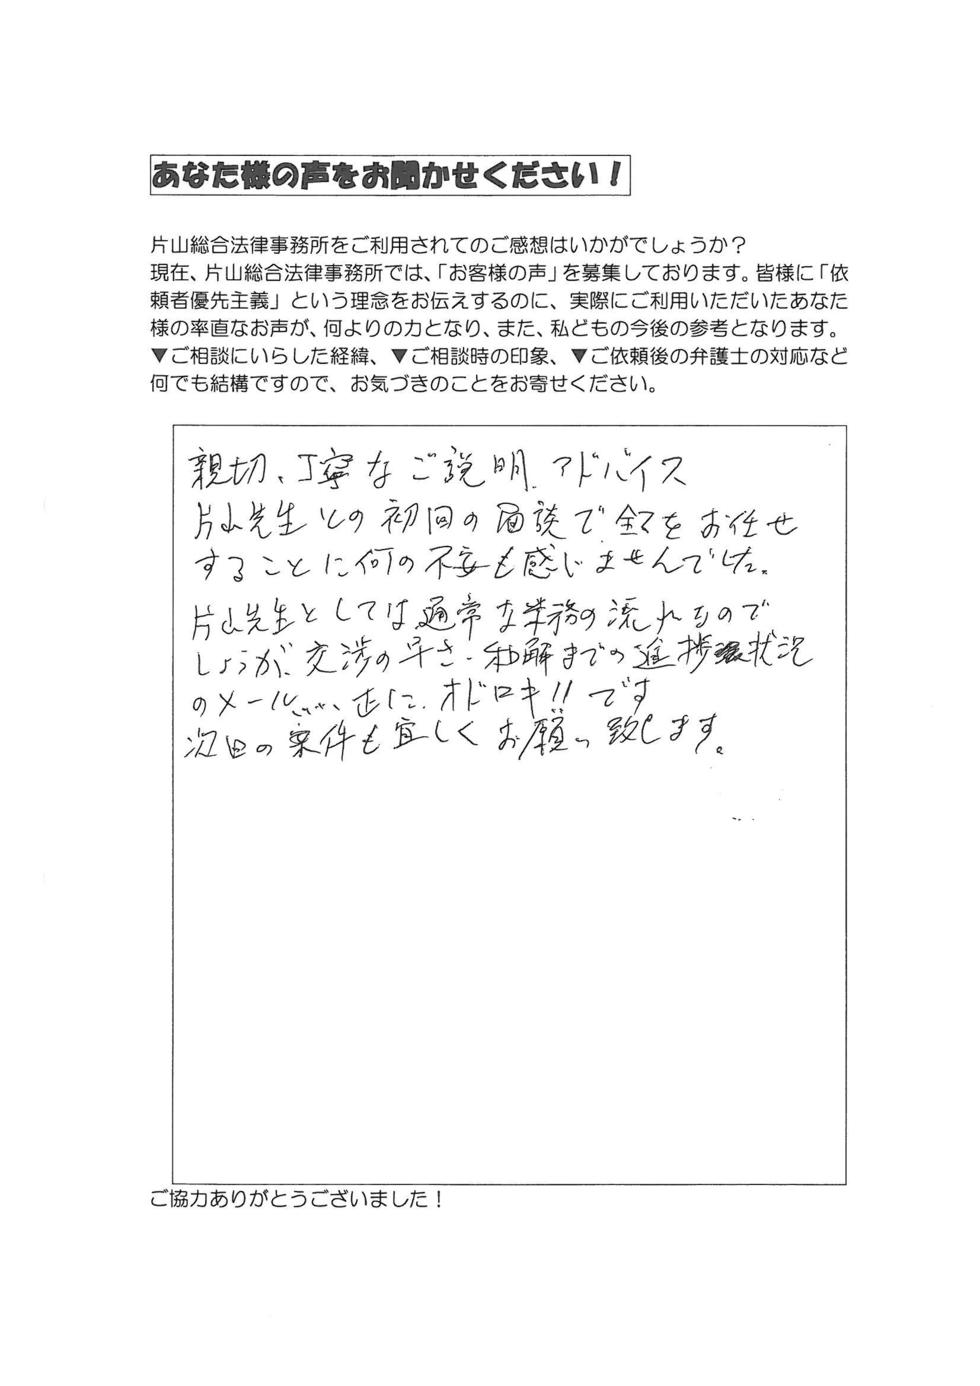 あなた様の声をお聞かせください！
片山総合法律事務所をご利用されてのご感想はいかがでしょうか？
現在、片山総合法律事務所では、「お客様の声」を募集しております。皆様に「依
頼者優先主義」という理念をお伝えするのに、実際にご利用いただいたあなた
様の率直なお声が、何よりの力となり、また、私どもの今後の参考となります。
▼ご相談にいらした経緯、▼ご相談時の印象、▼ご依頼後の弁護士の対応など
何でも結構ですので、お気づきのことをお寄せください。
親切、丁寧なご説明、アドバイス
片山先生との初回の面談で全てをお任せ
することに何の不安も感じませんでした。
片山先生としては通常な業務の流れなので
しょうが、交渉の早さ・和解までの進捗状況
のメール、、、正に、オドロキ!!です
次回の案件も宜しくお願い致します。
ご協力ありがとうございました！